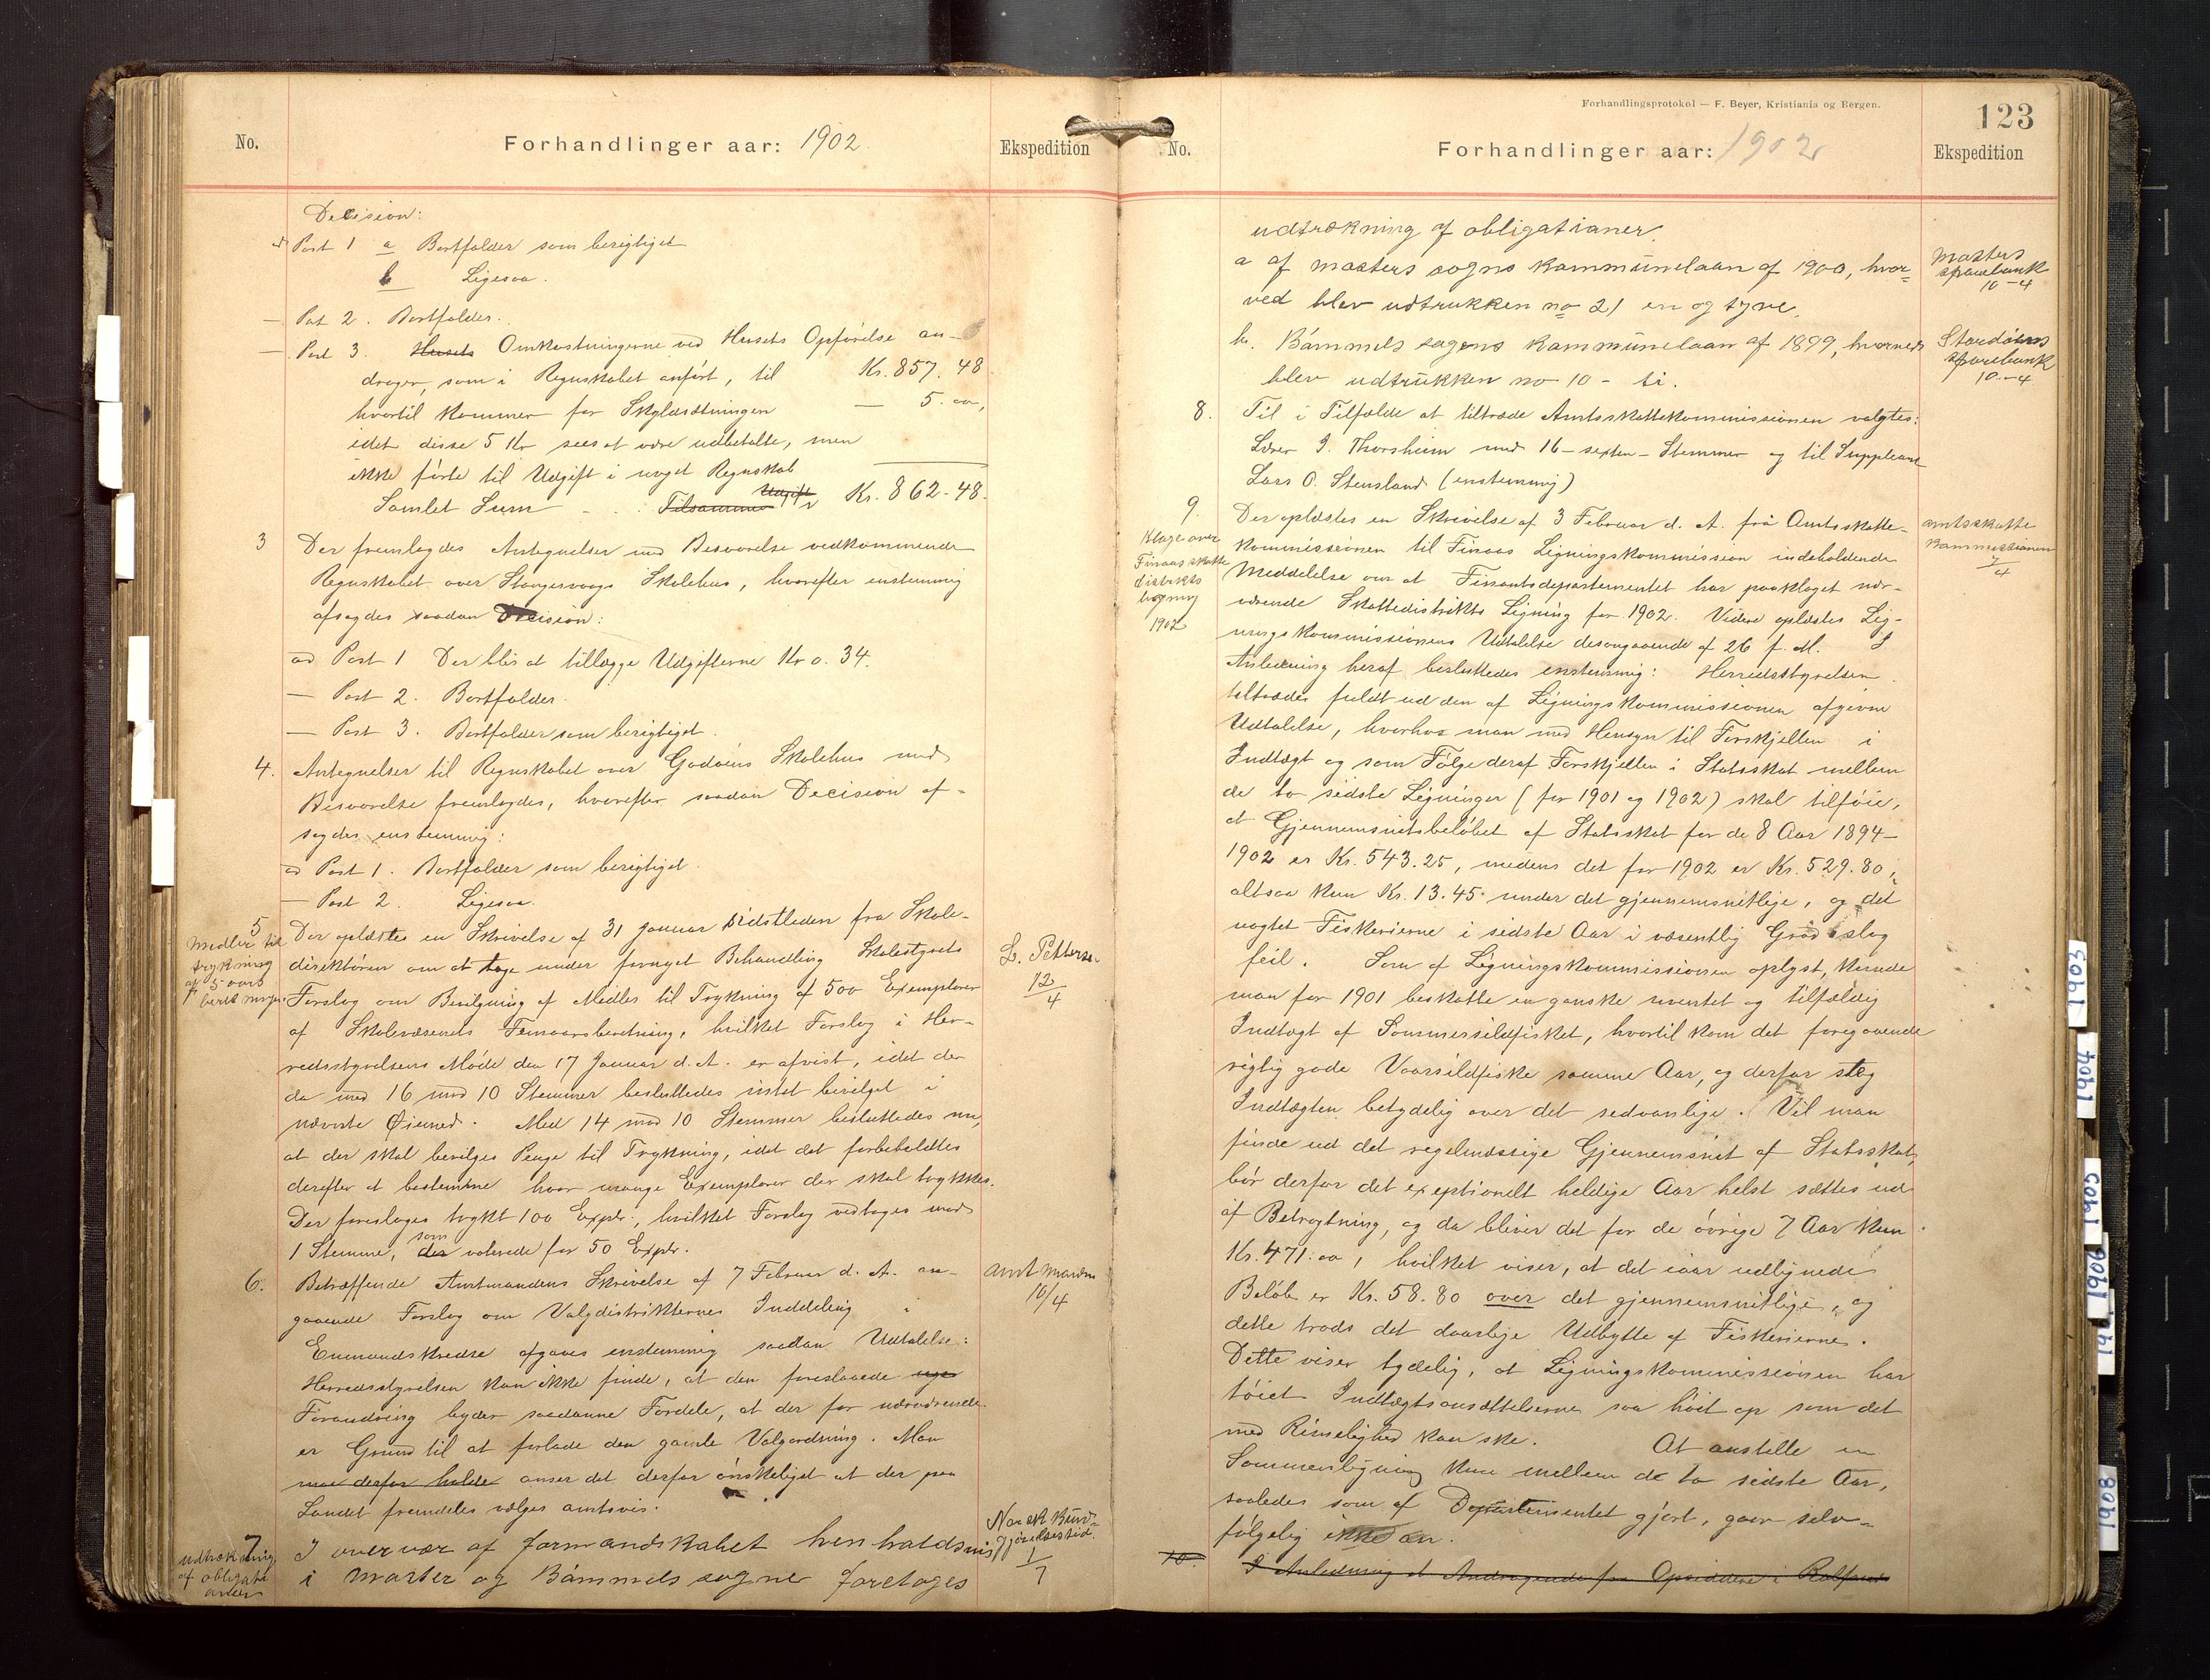 No.
Forhandlinger aar: 1902
Ekspedition
Decision:
ad Post 1 a Bortfalder som berigtiget
b Ligesaa.
— Post 2. Bortfalder.
— Post 3. Husets Omkostningerne ved Husets Opførelse an-
drager, som i Regnskabet anført, til Kr. 857.48
hvortil kommer for Skyldsætningen — 5.00,
idet disse 5 Kr sees at være udbetalte, men
ikke førte til Udgift i noget Regnskab
Samlet Sum Tilsammen Udgift Kr. 862.48.
3 Der fremlagdes Antegnelser med Besvarelse vedkommende
Regnskabet over Stangervaags Skolehus, hvorefter enstemmig
afsagdes saadan Decision:
ad Post 1 Der blir at tillægge Udgifterne Kr 0.34.
— Post 2. Bortfalder.
— Post 3. Bortfalder som berigtiget.
4. Antegnelser til Regnskabet over Godøens Skolehus med
Besvarelse fremlagdes, hvorefter saadan Decision af-
sagdes enstemmig:
ad Post 1. Bortfalder som berigtiget.
— Post 2. Ligesaa.
5
Midler til
trykning
af 5 aars
beretninger
Der oplæstes en Skrivelse af 31 Januar sidstleden fra Skole-
direktøren om at tage under fornyet Behandling Skolestyrets
Forslag om Bevilgning af Midler til Trykning af 500 Exemplarer
af Skolevæsenets Femaarsberetning, hvilket Forslag i Her-
redsstyrelsens Møde den 17 Januar d. A. er afvist, idet der
da med 16 mod 10 Stemmer besluttedes intet bevilget i
nævnte Øiemed. Med 14 mod 10 Stemmer besluttedes nu,
at der skal bevilges Penge til Trykning, idet det forbeholdtes
derefter at bestemme hvor mange Exemplarer der skal trykkes.
Der foresloges trykt 100 Explr., hvilket Forslag vedtoges mod
1 Stemme, der som voterede for 50 Explr.
L. Pettersen
12/4
6. Betræffende Amtmandens Skrivelse af 7 Februar d. A. an-
gaaende Forslag om Valgdistrikternes Inddeling i
Enmandskredse afgaves enstemmig saadan Udtalelse:
Herredsstyrelsen kan ikke finde, at den foreslaaede nye
Forandring byder saadanne Fordele, at der for nærværende
er Grund til at forlade den gamle Valgordning. Man
maa derfor holde anser det derfor ønskeligst at der paa
Landet fremdeles vælges amtsvis.
Amtmanden
10/4
7
udtrækning
af obligati
oner
I overvær af formandskabet henholdsvis
i Moster og Bømmels sogne foretoges
Norsk Kund-
gjørelsestid.
1/7
Forhandlingsprotokol — F. Beyer, Kristiania og Bergen.
123
No.
Forhandlinger aar: 1902
Ekspedition
udtrækning af obligationer.
a af mosters sogns kommunelaan af 1900, hvor-
ved blev udtrukken no 21 en og tyve.
Mosters
sparebank
10-4
b. Bømmels sogns kommunelaan af 1899, hvorved
blev udtrukken no 10 - ti.
Stordøens
sparebank
10-4
8. Til i Tilfælde at tiltræde Amtsskattekommissionen valgtes:
Lærer I. Thorsheim med 16 - sexten - Stemmer og til Suppleant
Lars O. Stensland (enstemmig)
9.
Klage over
Finaas skatte
distrikts
ligning
1902
Der oplæstes en Skrivelse af 3 Februar d. A. fra Amtsskatte-
kommissionen til Finaas Ligningskommission indeholdende
Meddelelse om at Finantsdepartementet har paaklaget nær-
værende Skattedistrikts Ligning for 1902. Videre oplæstes Lig-
ningskommissionens Udtalelse desangaaende af 26 f. M. I
Anledning heraf besluttedes enstemmig: Herredsstyrelsen
tiltræder fuldt ud den af Ligningskommissionen afgivne
Udtalelse, hvorhos man med Hensyn til Forskjellen i
Indtægt og som Følge deraf Forskjellen i Statsskat mellem
de to sidste Ligninger (for 1901 og 1902) skal tilføie,
at Gjennemsnitsbeløbet af Statsskat for de 8 Aar 1894-
1902 er Kr. 543.25, medens det for 1902 er Kr. 529.80,
altsaa kun Kr. 13.45 under det gjennemsnitlige, og det
uagtet Fiskerierne i sidste Aar i væsentlig Grad slog
feil. Som af Ligningskommissionen oplyst, kunde
man for 1901 beskatte en ganske uventet og tilfældig
Indtægt af Sommersildfisket, hvortil kom det foregaaende
rigtig gode Vaarsildfiske samme Aar, og derfor steg
Indtægten betydelig over det sedvanlige. Vil man
finde ud det regelmæssige Gjennemsnit af Statsskat,
bør derfor det exeptionelt heldige Aar helst sættes ud
af Betragtning, og da bliver det for de øvrige 7 Aar kun
Kr. 471.00, hvilket viser, at det iaar udlignede
Beløb er Kr. 58.80 over det gjennemsnitlige, og
dette trods det daarlige Udbytte af Fiskerierne.
Dette viser tydelig, at Ligningskommissionen har
tøiet Indtægtsansættelserne saa høit op som det
med Rimelighed kan ske. At anstille en
Sammenligning kun mellem de to sidste Aar,
saaledes som af Departementet gjort, gaar selv-
følgelig ikke an.
amtsskatte
kommissionen
7/4
10. I Anledning af Andragende fra Opsiddere i
1903
1904
1905
1906
1908